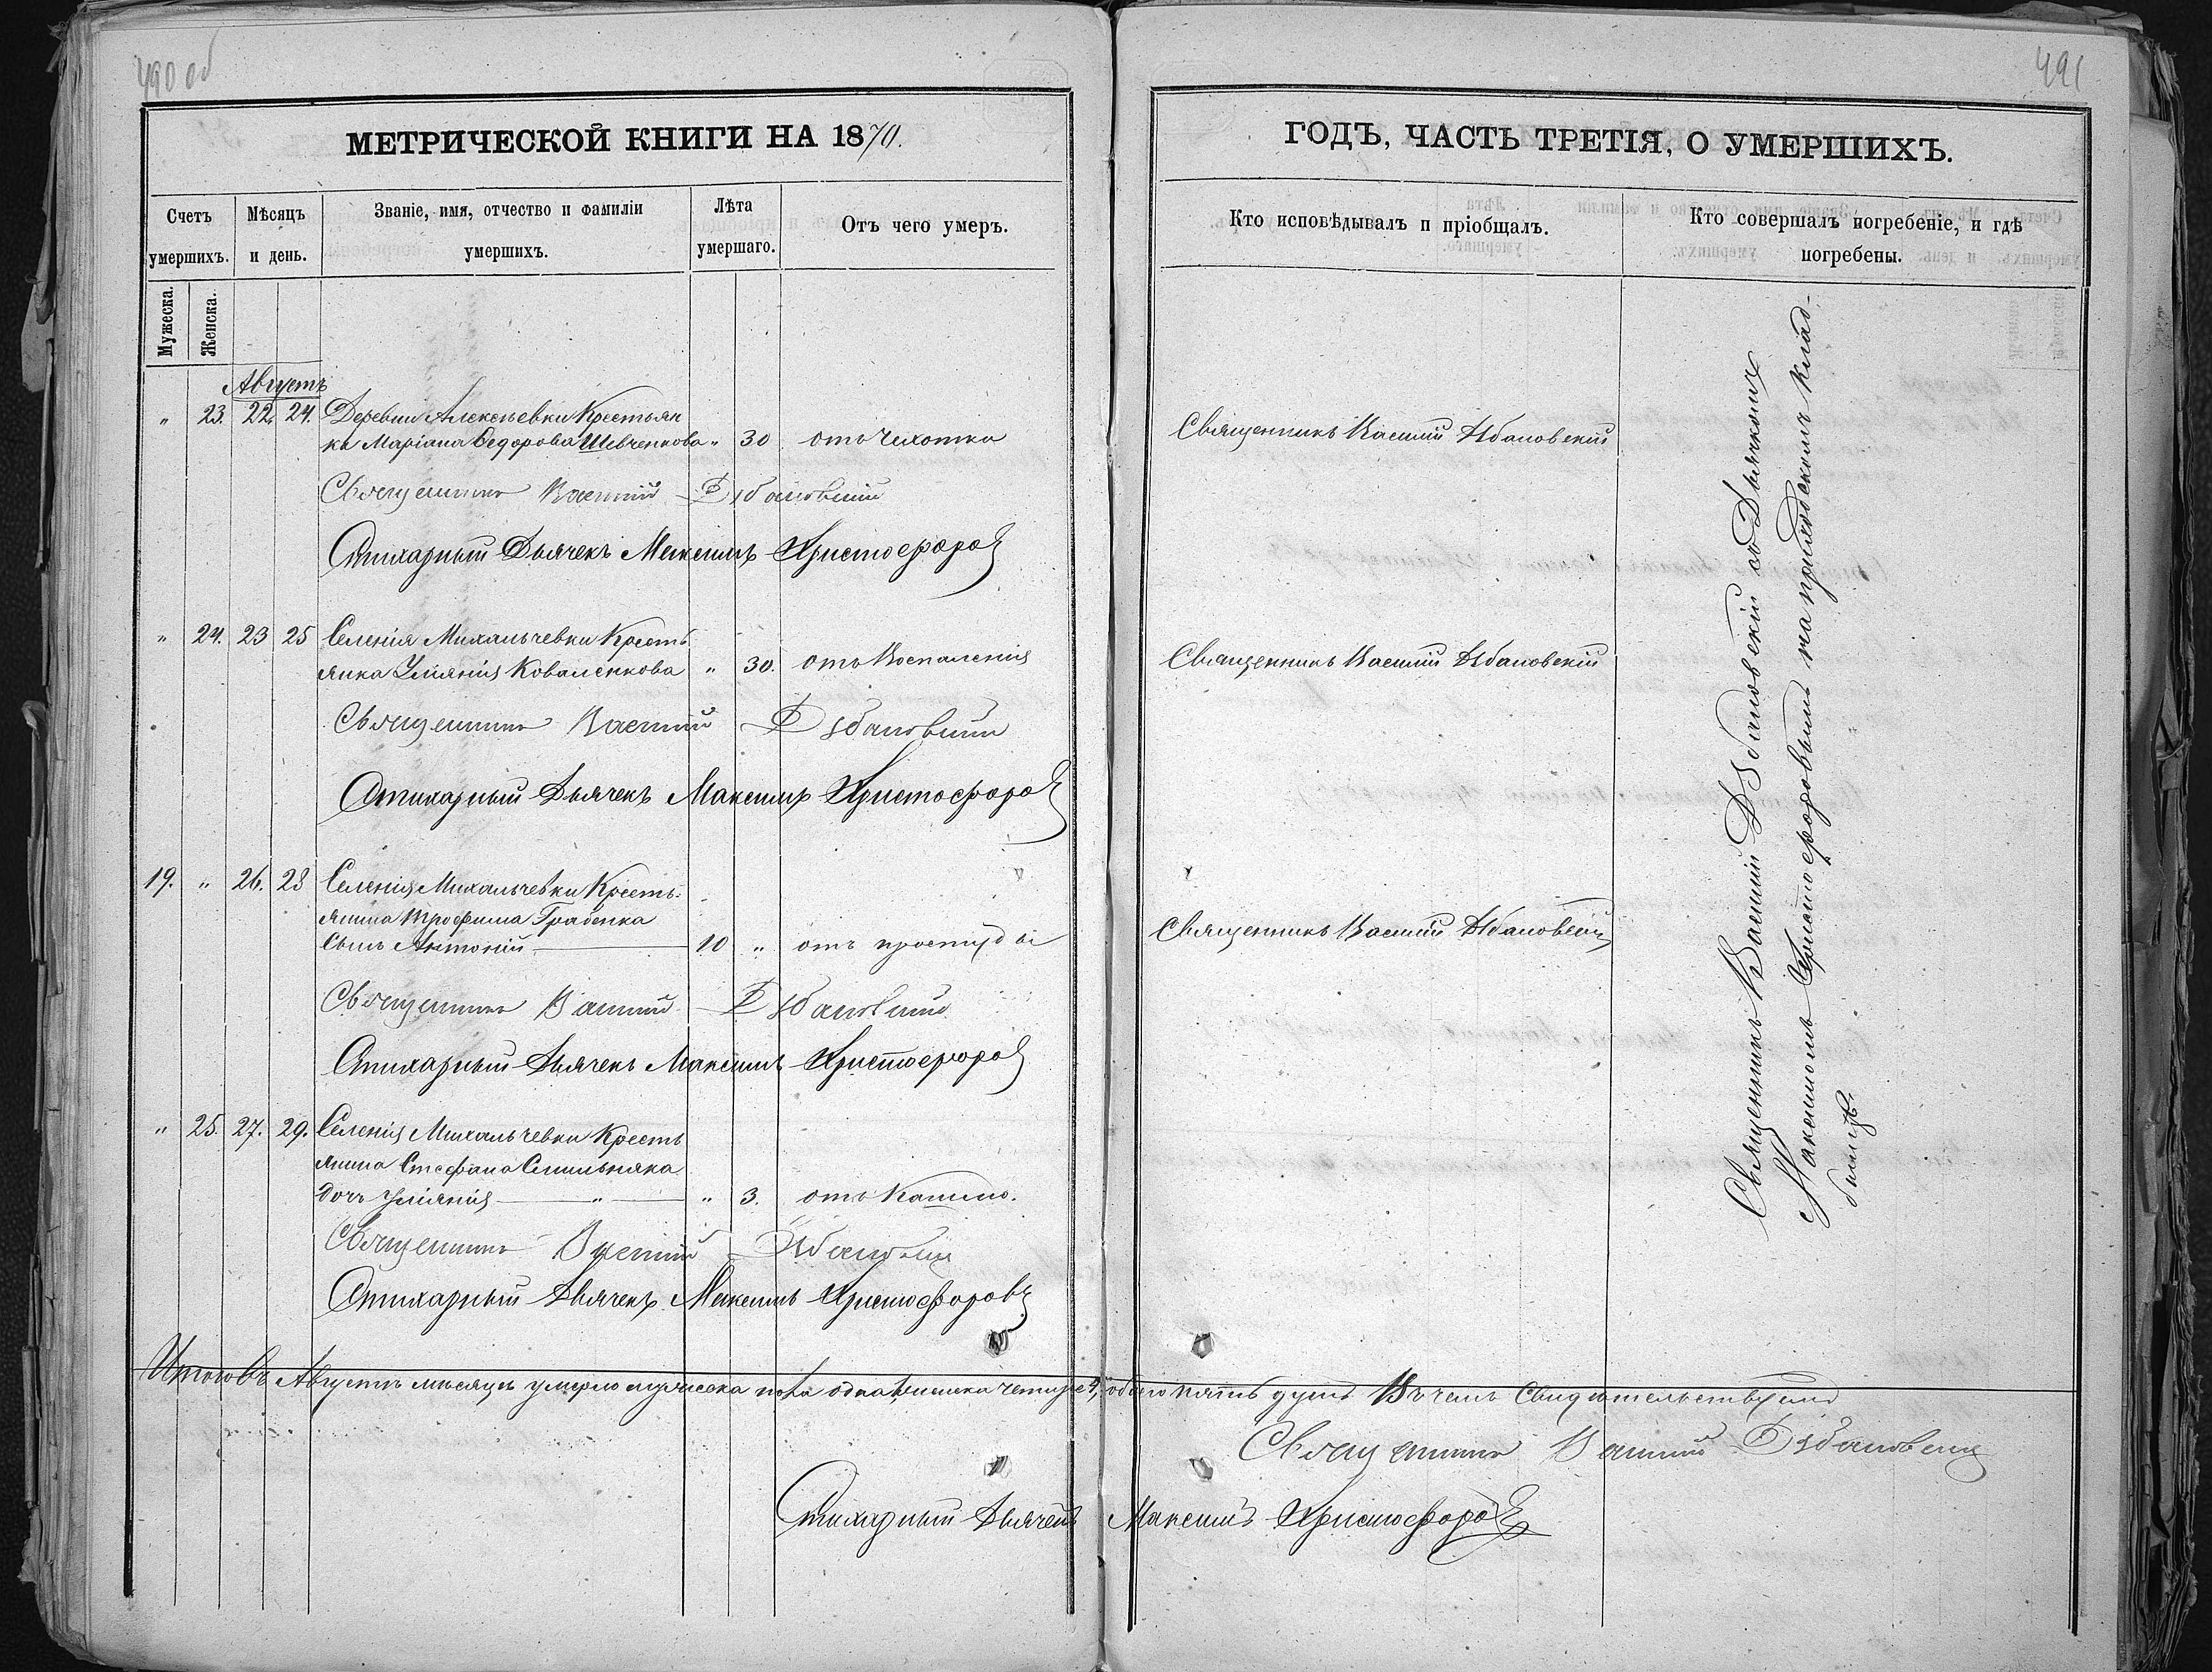 490 об
491
МЕТРИЧЕСКОЙ КНИГИ НА 1870.
ГОДЪ, ЧАСТЬ ТРЕТІЯ, О УМЕРШИХЪ.
Счетъ умершихъ.
Мѣсяцъ и день.
Званіе, имя, отчество и фамиліи умершихъ.
Лѣта умершаго.
Отъ чего умеръ.
Кто исповѣдывалъ и пріобщалъ.
Кто совершалъ погребеніе, и гдѣ погребены.
Мужеска.
Женска.
Августъ
" 23. 22. 24. Деревни Алексѣевки Крестьян
ка Маріана Ѳедорова Шевченкова " 30 отъ чахотки
Священникъ Василій Дзбановскій
Священникъ Василій Дзбановскій
Стихарный Дьячекъ Максимъ Христофоровъ
" 24. 23 25 Селенія Михальчевки Кресть
янка Уліянія Коваленкова " 30. отъ Воспаленія
Священникъ Василій Дзбановскій
Священникъ Василій Дзбановскій
Стихарный Дьячекъ Максимъ Христофоровъ
19. " 26. 28 Селенія Михальчевки Кресть-
янина Трофима Грабенка
Сынъ Антоній 10 " отъ простуды
Священникъ Василій Дзбановскій
Священникъ Василій Дзбановскій
Стихарный Дьячекъ Максимъ Христофоровъ
" 25. 27. 29. Селенія Михальчевки Кресть
янина Стефана
Дочь Уліянія " " 3. отъ Кашлю.
Священникъ Василій Дзбановскій
Стихарный Дьячекъ Максимъ Христофоровъ
Священникъ Василій Дзбановскій съ Дьячкомъ
Максимомъ Христофоровымъ на приходскомъ клад-
бищѣ.
Итого въ Августѣ мѣсяцѣ умерло мужеска пола одна, женска четыре, обоего пять душъ Въ чемъ Свидѣтельствуемъ
Священникъ Василій Дзбановскій
Стихарный Дьячекъ Максимъ Христофоровъ